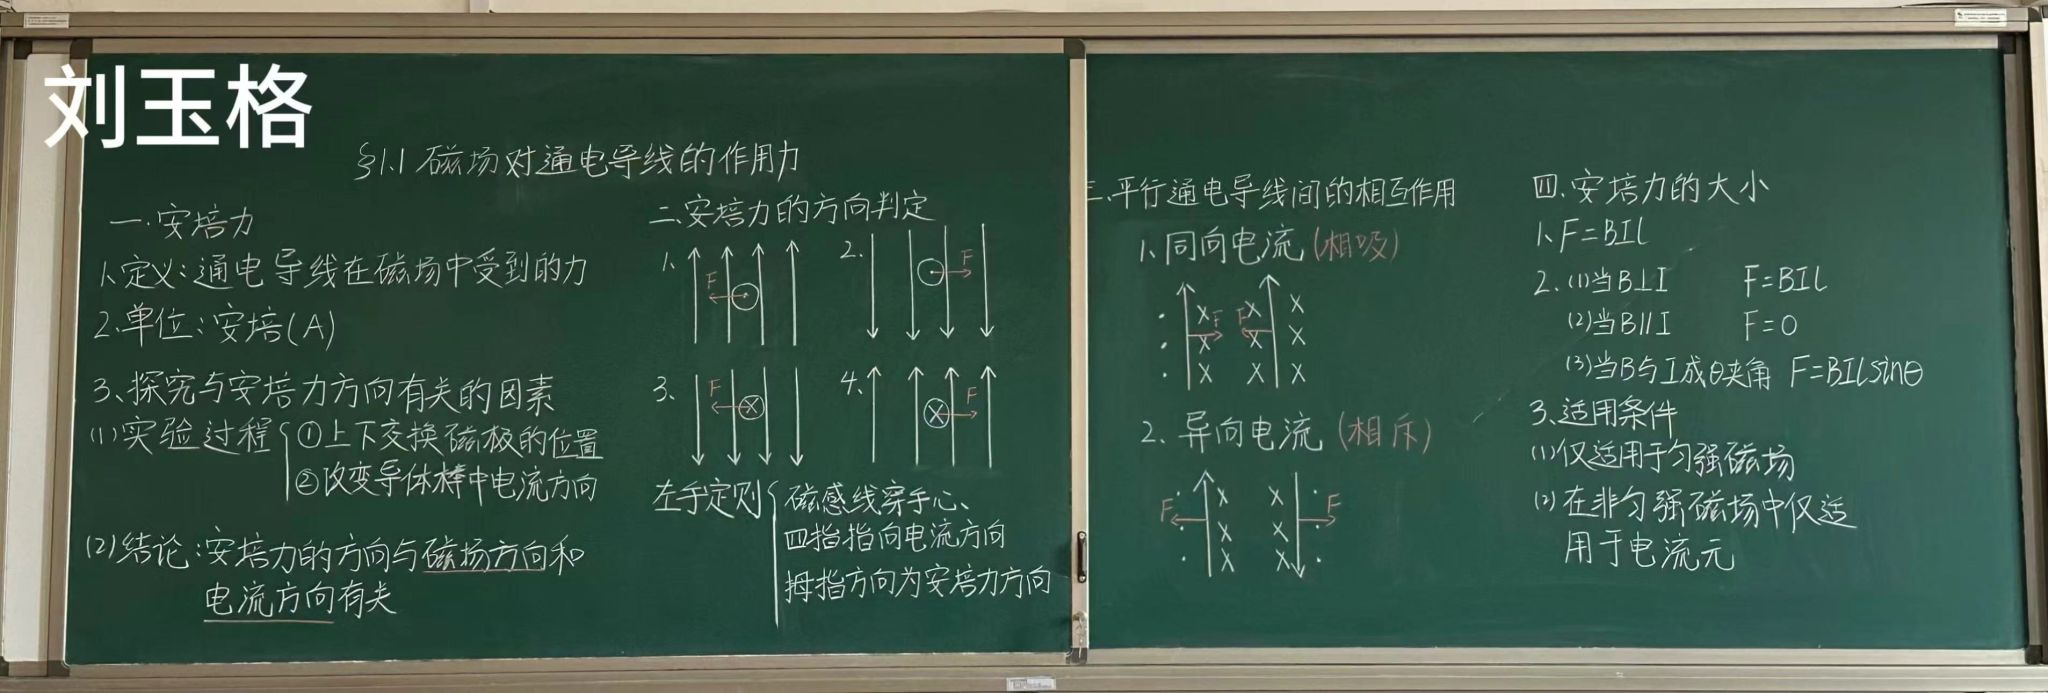 刘玉格
§1.1 磁场对通电导线的作用力
一.安培力
1.定义:通电导线在磁场中受到的力
2.单位:安培(A)
3、探究与安培力方向有关的因素
(1)实验过程 ①上下交换磁极的位置
②改变导体棒中电流方向
(2)结论:安培力的方向与磁场方向和
电流方向有关
二.安培力的方向判定
1. F
2. F
3. F
4. F
左手定则 磁感线穿手心、
四指指向电流方向
拇指方向为安培力方向
三.平行通电导线间的相互作用
1、同向电流(相吸)
F F
2、异向电流(相斥)
F F
四.安培力的大小
1、F=BIL
2、(1)当B⊥I F=BIL
(2)当B∥I F=0
(3)当B与I成θ夹角 F=BILsinθ
3.适用条件
(1)仅适用于匀强磁场
(2)在非匀强磁场中仅适
用于电流元